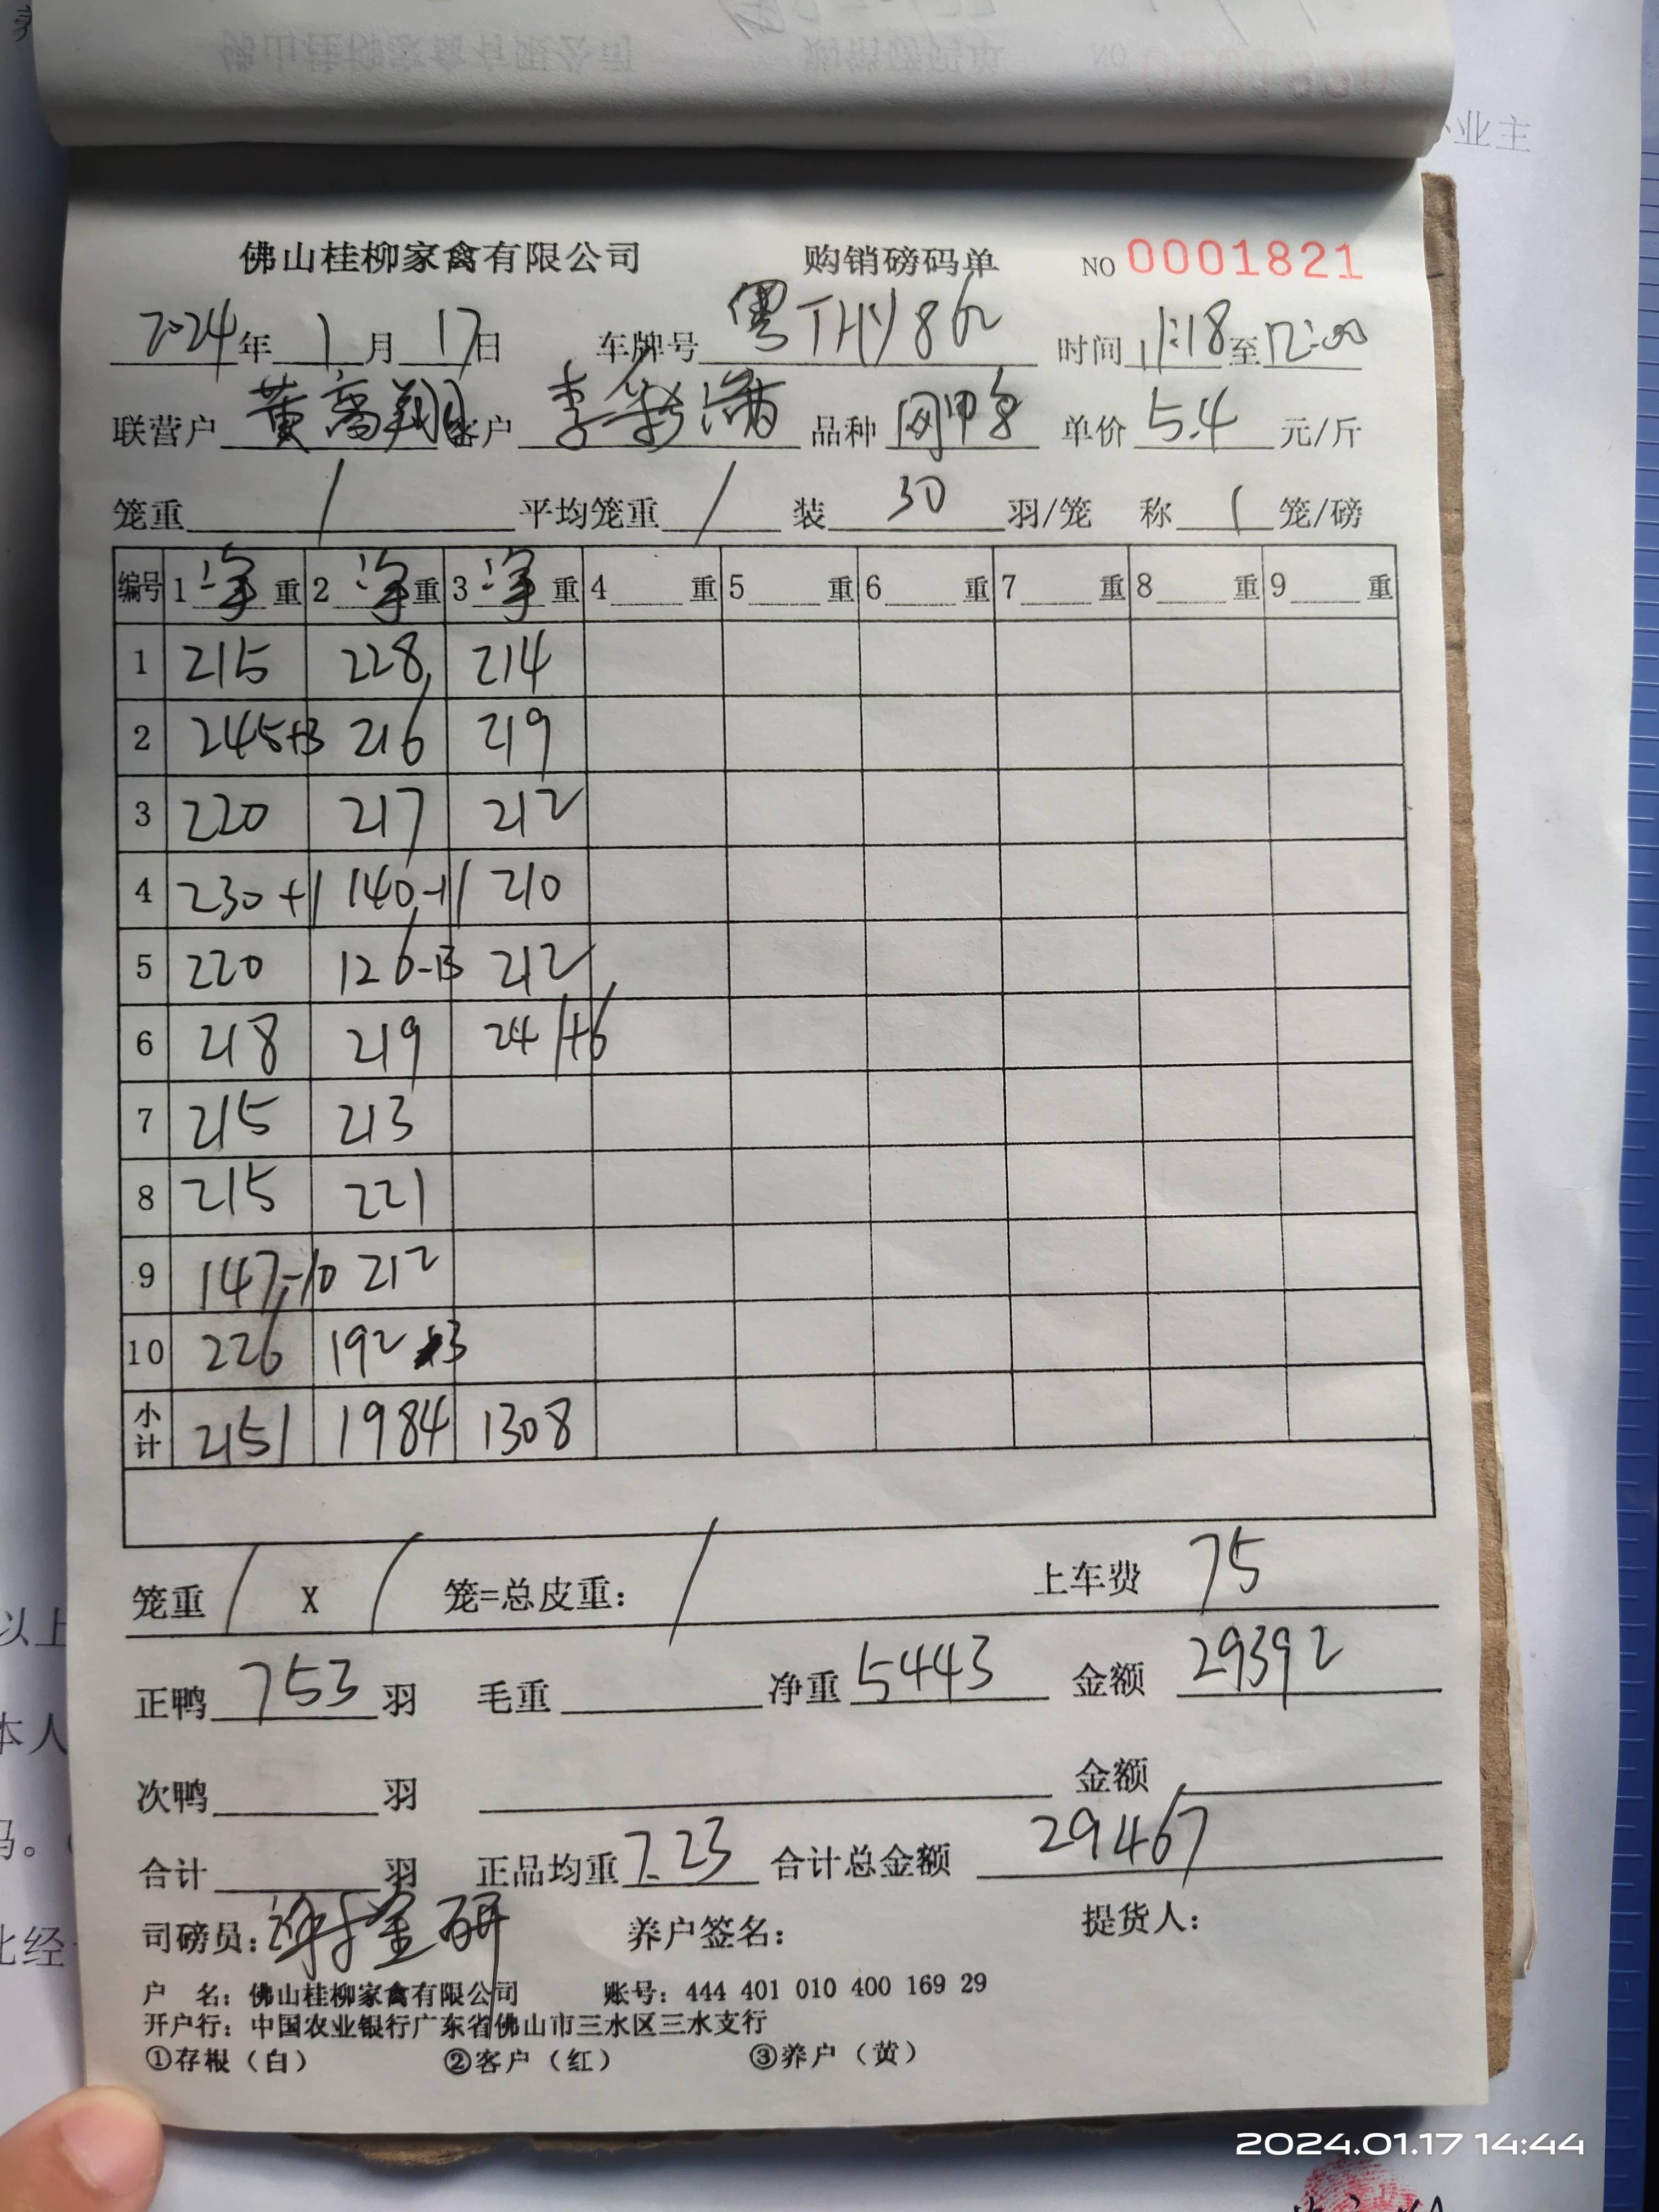 业主
佛山桂柳家禽有限公司 购销磅码单 NO 0001821
2024年 1月 17日 车牌号 粤THY862 时间 11:18至12:00
联营户 黄高翔 客户 李彩满 品种 网甲 单价 5.4 元/斤
笼重 / 平均笼重 / 装 30 羽/笼 称 1 笼/磅
编号 1 净重 2 净重 3 净重 4 重 5 重 6 重 7 重 8 重 9 重
1 215 228 214
2 245+3 216 219
3 220 217 212
4 230+1 140-11 210
5 220 126-13 212
6 218 219 241+6
7 215 213
8 215 221
9 147-10 212
10 226 192 3
小计 2151 1984 1308
笼重 / X / 笼=总皮重: / 上车费 75
正鸭 753 羽 毛重 净重 5443 金额 29392
次鸭 羽 金额
合计 羽 正品均重 7.23 合计总金额 29467
司磅员: 研 养户签名: 提货人:
户 名: 佛山桂柳家禽有限公司 账号: 444 401 010 400 169 29
开户行: 中国农业银行广东省佛山市三水区三水支行
①存根(白) ②客户(红) ③养户(黄)
以上
本人
2024.01.17 14:44